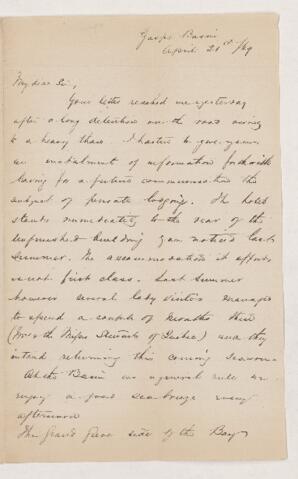 Gaspé Basin
April 21st /69
My dear Sir,
Your letter reached me yesterday
after a long detention on the road owing
to a heavy thaw. I hasten to give you
an instalment of information forthwith
leaving for a future communication the
subject of private lodging. The hotel
stands immediately to the rear of the
unfinished building you noticed last
summer. The accommodation it affords
is not first class. Last summer
however several lady visitors managed
to spend a couple of months there
(two the Misses Stewart of Quebec) and they
intend returning this coming season.
At the Basin as a general rule we
enjoy a good sea breeze every
afternoon
The Grand Grève side of the Bay